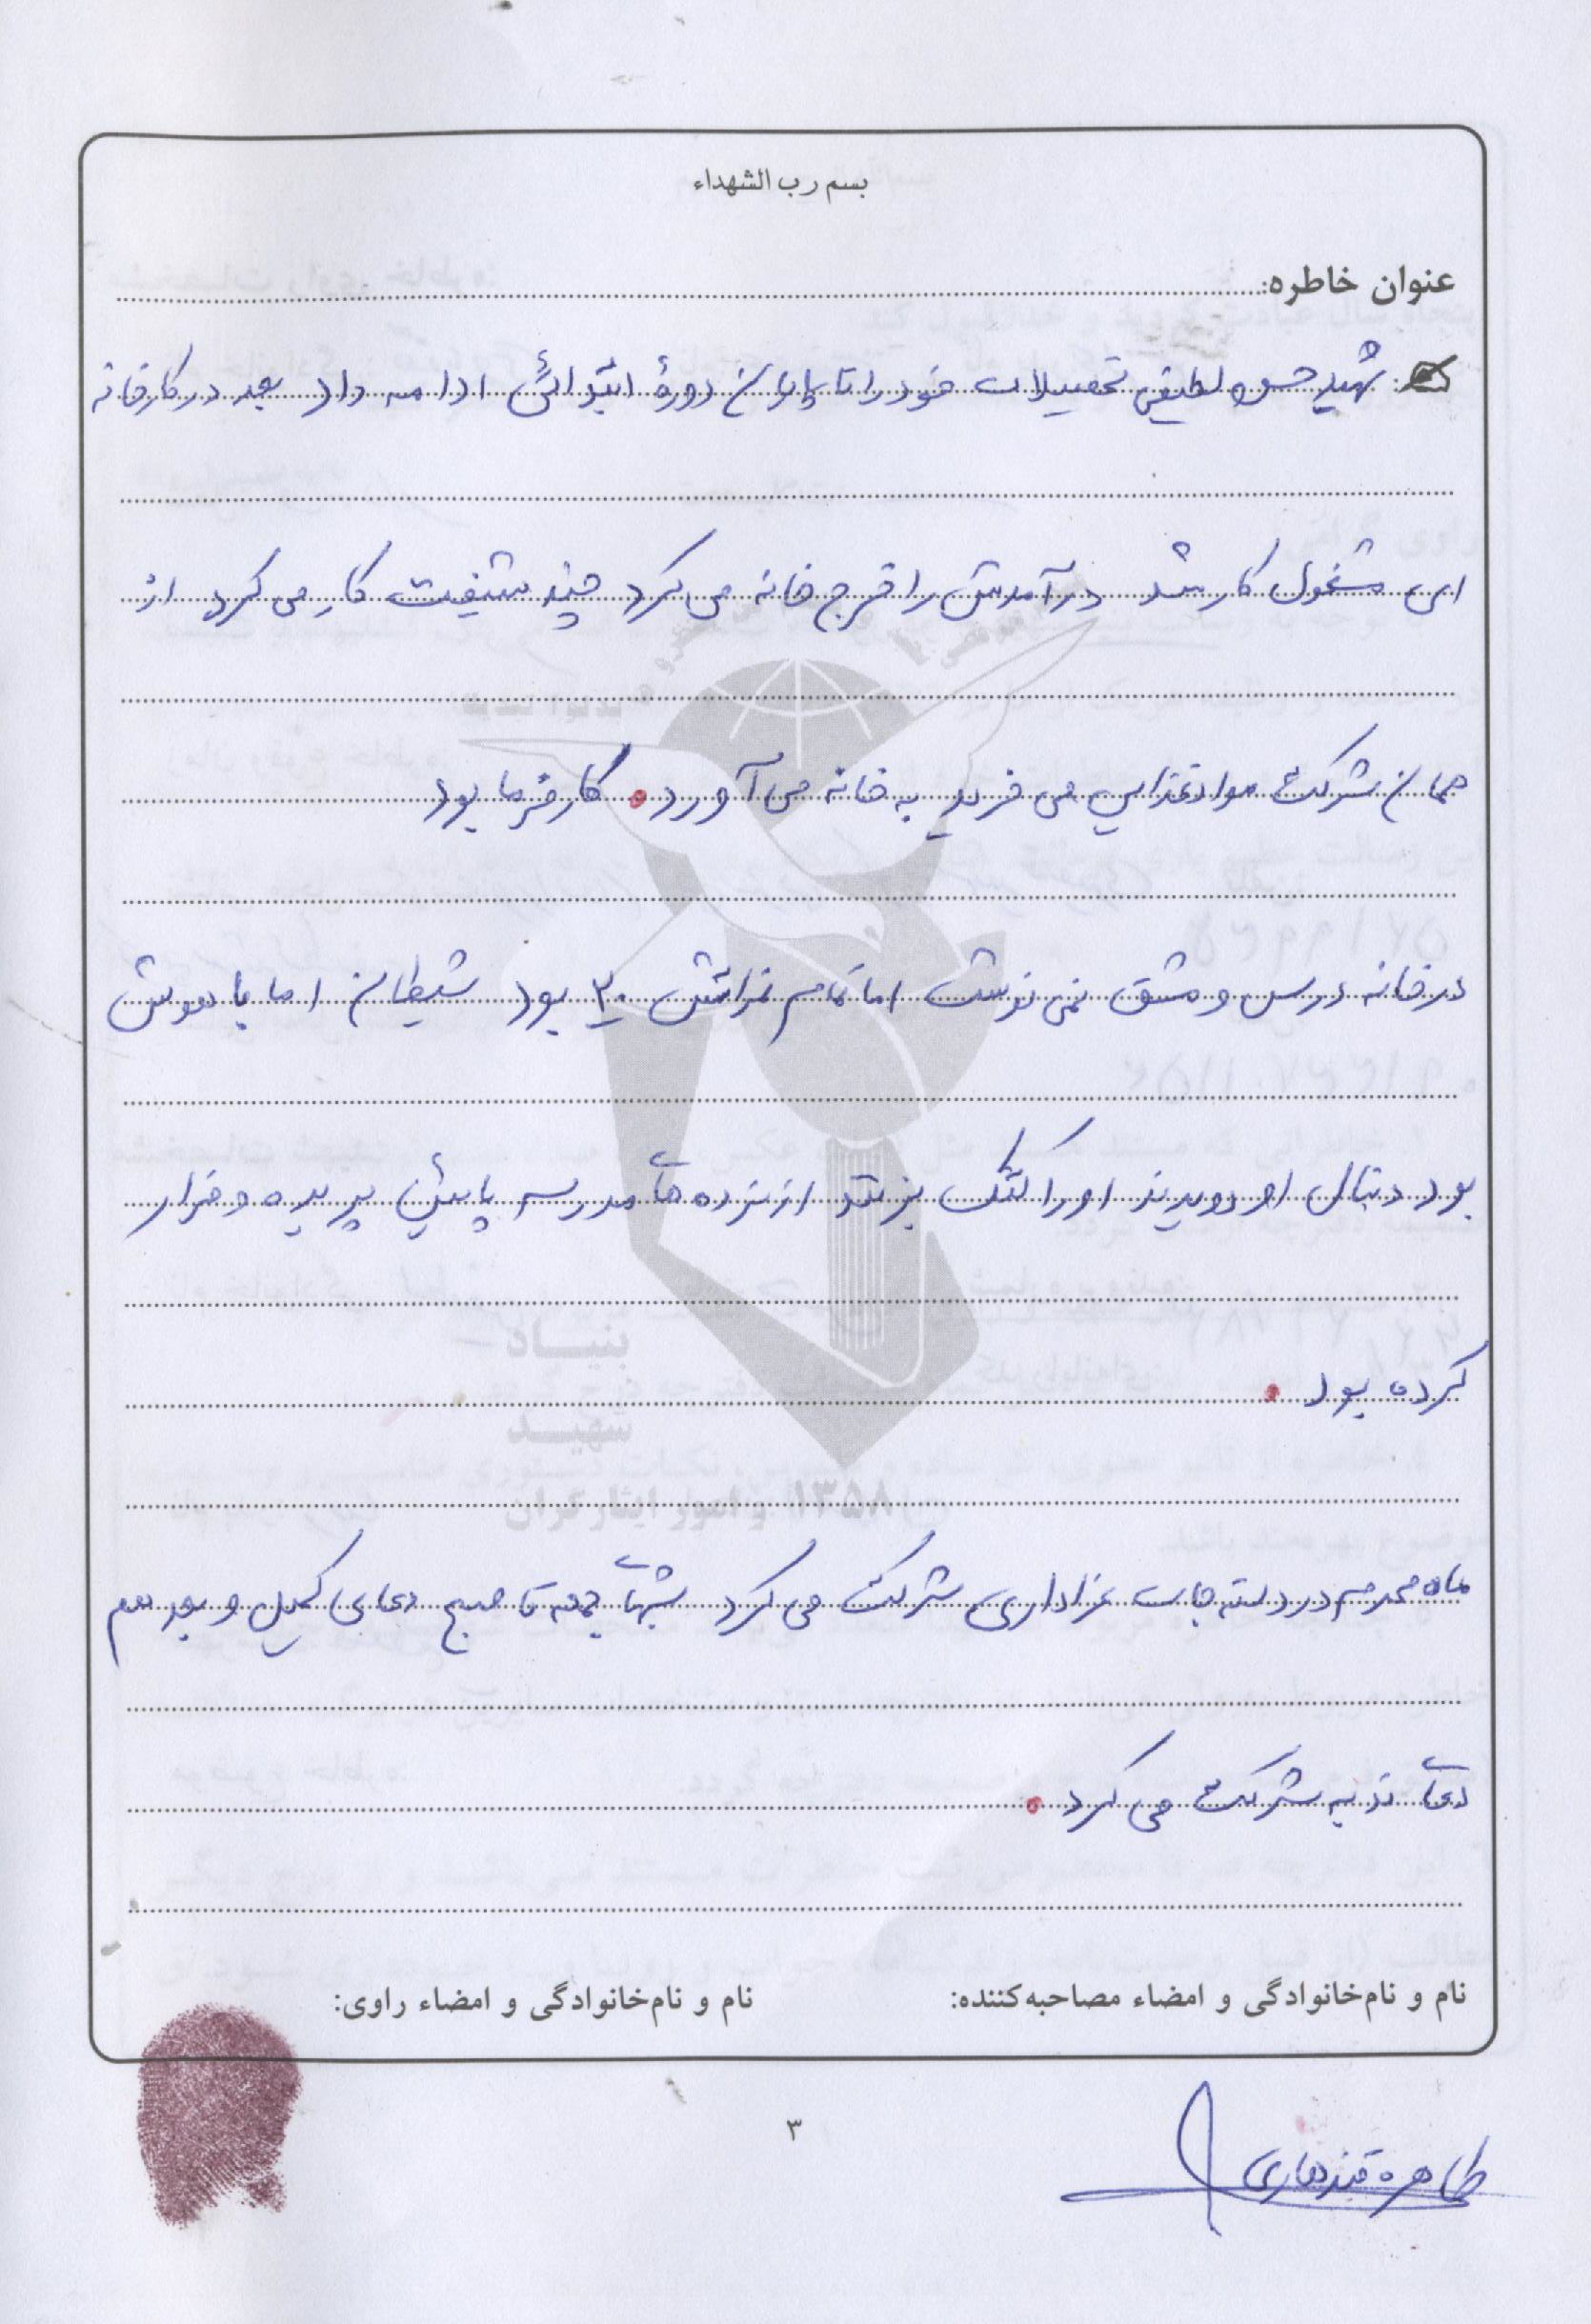 بسم رب الشهداء
عنوان خاطره:
شهید حسن لطیفی تحصیلات خود را تا پایان دورهٔ ابتدائی ادامه داد بعد در کارخانه
ای مشغول کار شد درآمدش را خرج خانه می کرد چند شیفت کار می کرد از
همان شرکت مواد غذایی می خرید به خانه می آورد. کارفرما بود
در خانه درس و مشق نمی نوشت اما تمام نمراتش ۲۰ بود شیطان اما باهوش
بود دنبال او دویدند او را کتک بزنند از نرده های مدرسه پائین پریده و فرار
کرده بود.
ماه محرم در دسته جات عزاداری شرکت می کرد شبهای جمعه تا صبح دعای کمیل و بعد هم
دعای ندبه شرکت می کرد.
نام و نام‌خانوادگی و امضاء مصاحبه‌کننده: نام و نام‌خانوادگی و امضاء راوی:
طاهره قندهاری
۳
بنیاد
شهید
و امور ایثارگران ۱۳۵۸